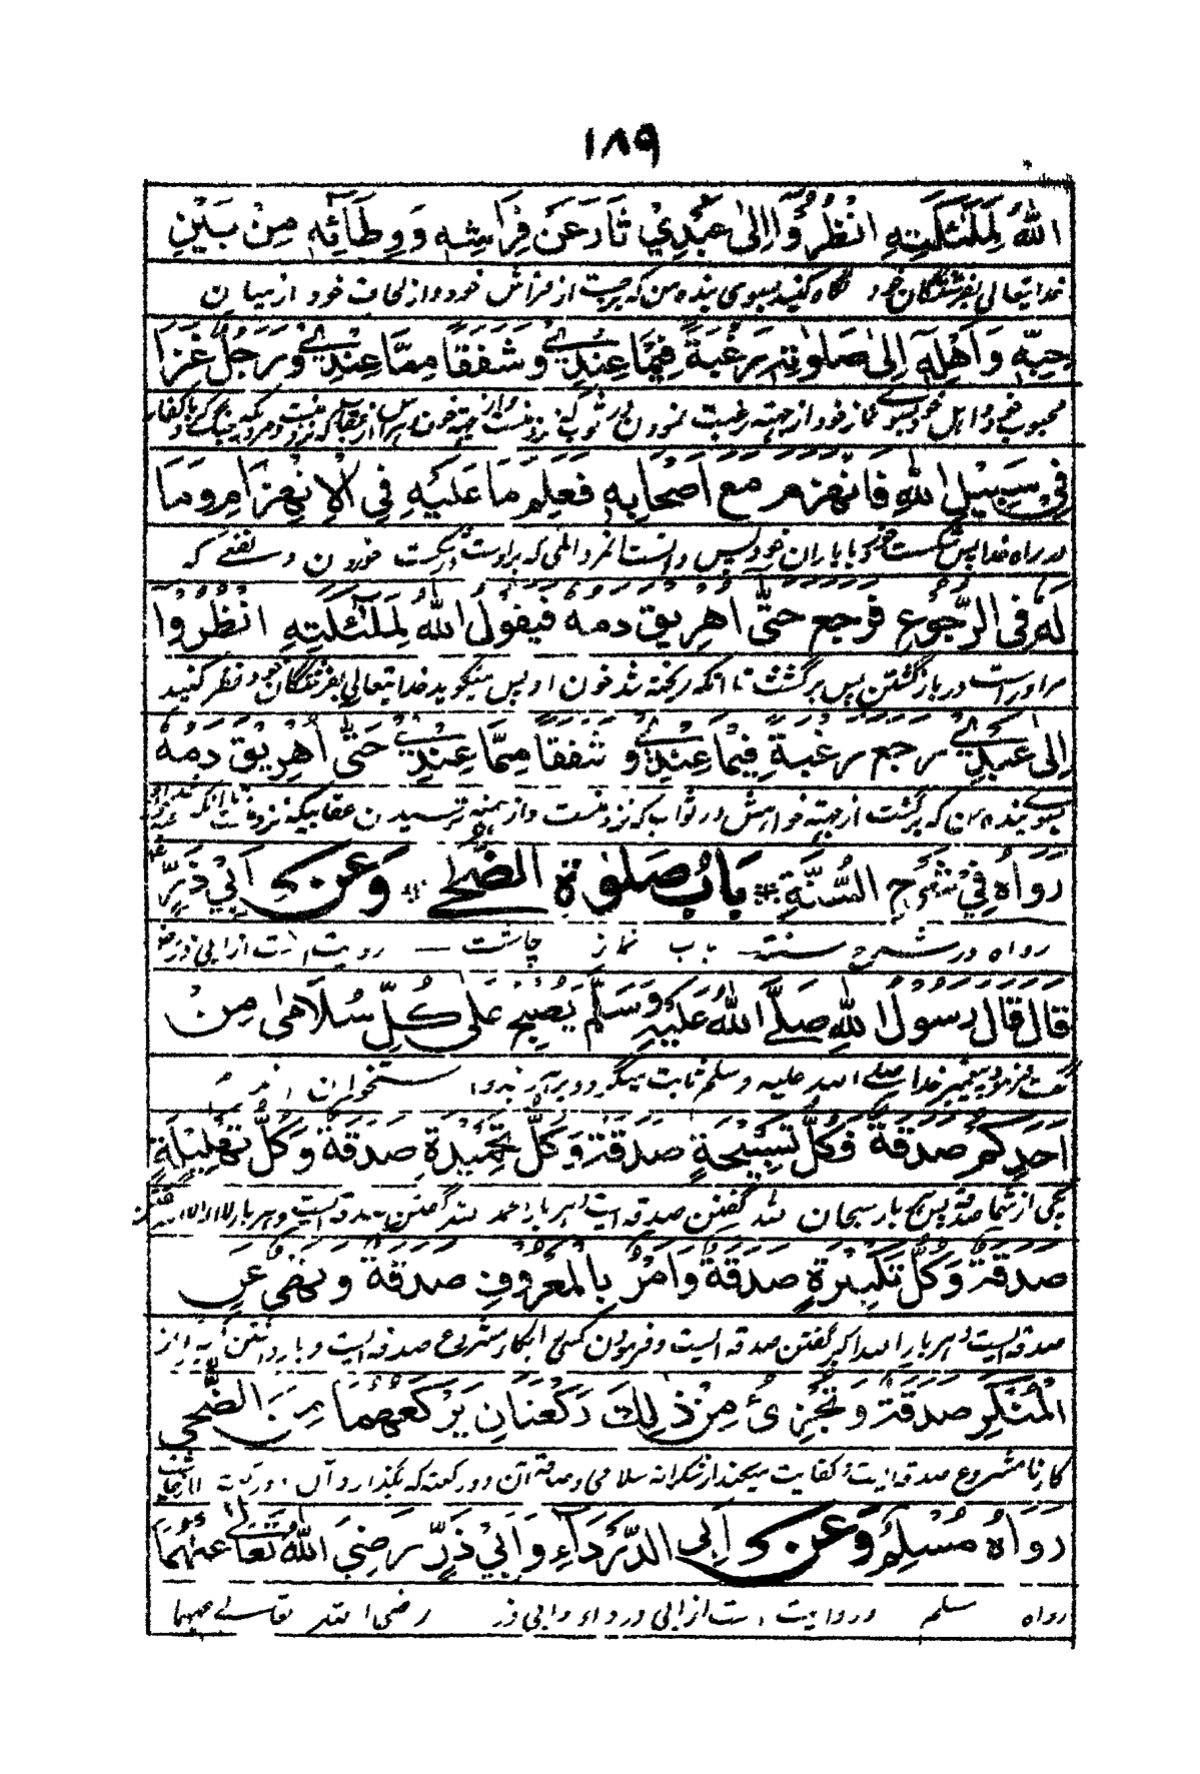 ١٨٩
اللهُ لِمَلٰٓئِكَتِهِ انْظُرُوْا اِلٰى عَبْدِيْ ثَارَ عَنْ فِرَاشِهٖ وَوِطَائِهٖ مِنْ بَيْنِ
خدایتعالی بفرشتگان خود نگاه کنید بسوی بنده من که برجست از فراش خود و از لحاف خود از میان
حِبِّهٖ وَاَهْلِهٖٓ اِلٰى صَلٰوتِهٖ رَغْبَةً فِيْمَا عِنْدِيْ وَشَفَقًا مِمَّا عِنْدِيْ وَرَجُلٌ غَزَا
محبوب خود و اهل خود بسوی نماز خود از جهته رغبت نمودن در ثوابی که نزد منست
فِيْ سَبِيْلِ اللهِ فَانْهَزَمَ مَعَ اَصْحَابِهٖ فَعَلِمَ مَا عَلَيْهِ فِي الْاِنْهِزَامِ وَمَا
در راه خدا پس شکست خورد با یاران خود پس دانست آنمرد المی که براوست در شکست خوردن و نفعے که
لَهٗ فِي الرُّجُوْعِ فَرَجَعَ حَتّٰى اُهْرِيْقَ دَمُهٗ فَيَقُوْلُ اللهُ لِمَلٰٓئِكَتِهِ انْظُرُوْا
مر اوراست در باز گشتن پس برگشت تا انکه ریخته شد خون او پس میگوید خدایتعالی بفرشتگان خود نظر کنید
اِلٰى عَبْدِيْ رَجَعَ رَغْبَةً فِيْمَا عِنْدِيْ وَ شَفَقًا مِمَّا عِنْدِيْ حَتّٰى اُهْرِيْقَ دَمُهٗ
بسوی بنده من که برگشت از جهته خواهش در ثواب که نزد منست و از جهته ترسیدن عقابیکه نزد
رَوَاهُ فِيْ شَرْحِ السُّنَّةِ بَابُ صَلٰوةِ الضُّحٰى وَعَنْ اَبِيْ ذَرٍّ
رواه در شرح سنته باب نماز چاشت روایت است از ابی ذر
قَالَ قَالَ رَسُوْلُ اللهِ صَلَّى اللهُ عَلَيْهِ وَسَلَّمَ يُصْبِحُ عَلٰى كُلِّ سُلَامٰى مِنْ
گفت فرمود پیغمبر خدا صلے الله علیه وسلم ثابت میگردد بر استخوان
اَحَدِكُمْ صَدَقَةٌ فَكُلُّ تَسْبِيْحَةٍ صَدَقَةٌ وَكُلُّ تَحْمِيْدَةٍ صَدَقَةٌ وَكُلُّ تَهْلِيْلَةٍ
یکی از شما صدقه پس هر بار سبحان الله گفتن صدقه است و هر بار الحمد لله گفتن صدقه است و هر بار لا اله الا الله
صَدَقَةٌ وَكُلُّ تَكْبِيْرَةٍ صَدَقَةٌ وَاَمْرٌ بِالْمَعْرُوْفِ صَدَقَةٌ وَنَهْيٌ عَنِ
صدقه است و هر بار الله اکبر گفتن صدقه است و فرمودن کسی را بکار مشروع صدقه است و باز داشتن از
الْمُنْكَرِ صَدَقَةٌ وَتُجْزِئُ مِنْ ذٰلِكَ رَكْعَتَانِ يَرْكَعُهُمَا مِنَ الضُّحٰى
کار نا مشروع صدقه است و کفایت میکند از شکرانه سلامی و صدقه آن دو رکعته که بگذارد آن
رَوَاهُ مُسْلِمٌ وَعَنْ اَبِي الدَّرْدَاءِ وَاَبِيْ ذَرٍّ رَضِيَ اللهُ تَعَالٰى عَنْهُمَا
رواه مسلم و روایت است از ابی درداء و ابی ذر رضی الله تعالے عنهما